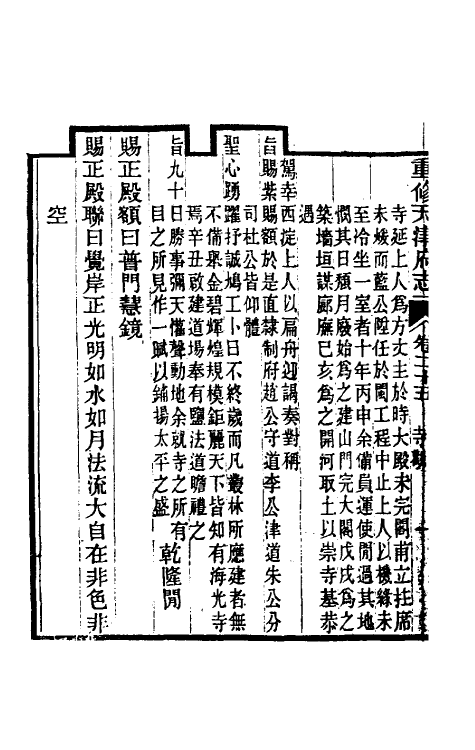 重修天津府志 卷二十五 寺觀
寺延上人爲方丈主於時大殿未完閣甫立拄席
未煖而藍公陞任於閩工程中止上人以機緣未
至冷坐一室者十年丙申余備員運使閒過其地
憫其日頹月廢始爲之建山門完大閣戊戌爲之
築墻垣謀廊廡己亥爲之開河取土以崇寺基恭
遇
駕幸西淀上人以扁舟迎謁奏對稱
旨賜紫賜額於是直隸制府趙公守道李公津道朱公分
司杜公皆仰體
聖心踴躍抒誠鳩工卜日不終歲而凡叢林所應建者無
不備舉金碧輝煌規模鉅麗天下皆知有海光寺
焉辛丑啟建道場奉有鹽法道瞻禮之
旨九十日勝事彌天懽聲動地余就寺之所有
目之所見作一賦以鋪揚太平之盛 乾隆閒
賜正殿額曰普門慧鏡
賜正殿聯曰覺岸正光明如水如月法流大自在非色非
空